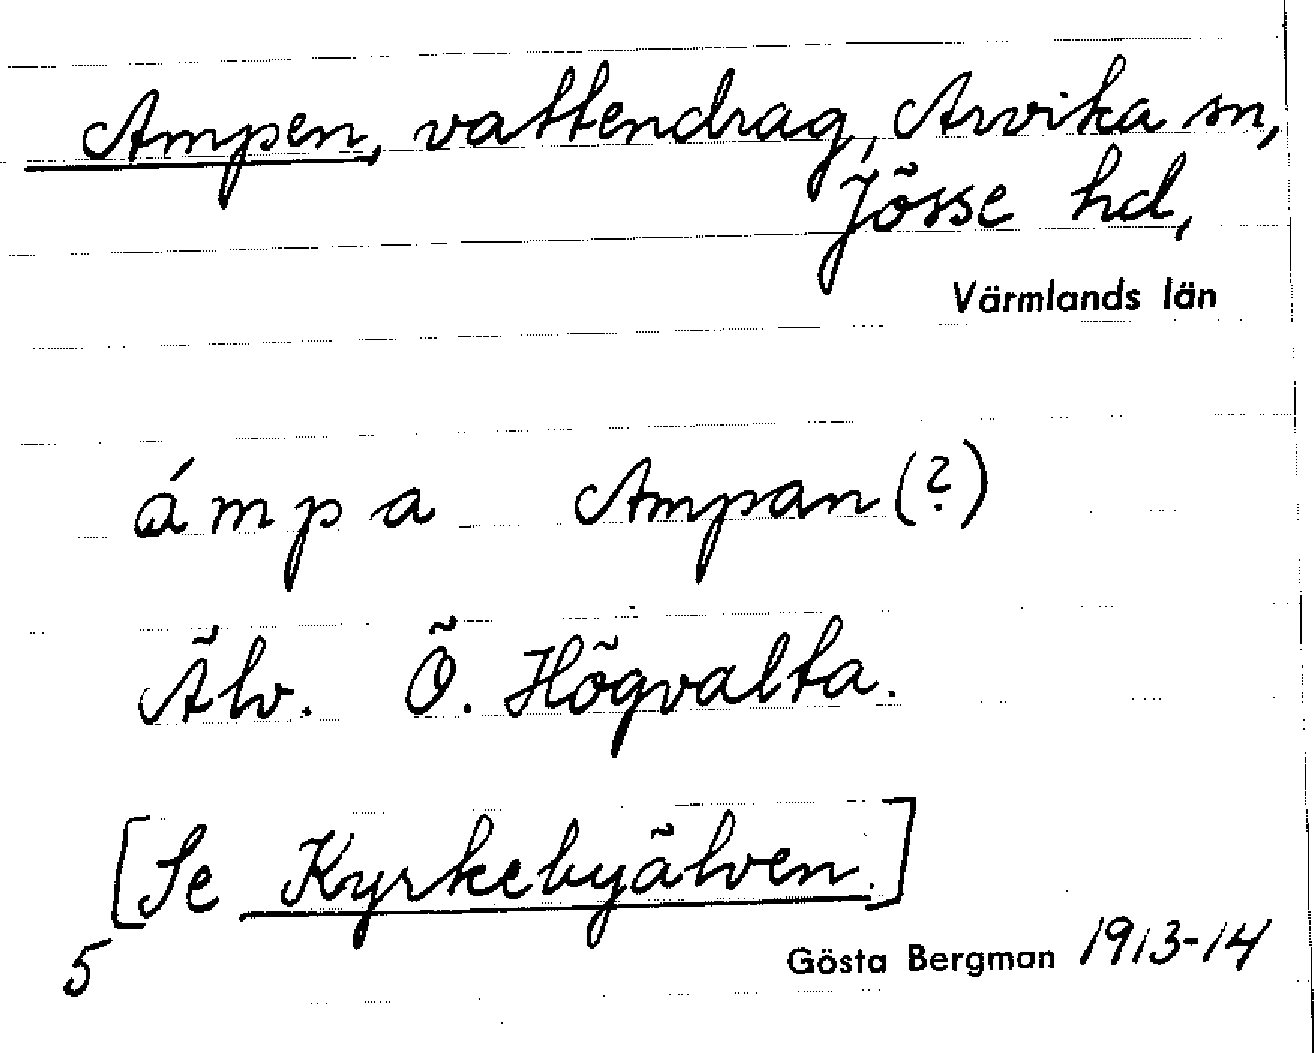 Ampen, vattendrag, Arvika sn,
Jösse hd,
Värmlands län
ámpa Ampan (?)
Älv. Ö. Högvalta.
[Se Kyrkebyälven.]
5 Gösta Bergman 1913-14